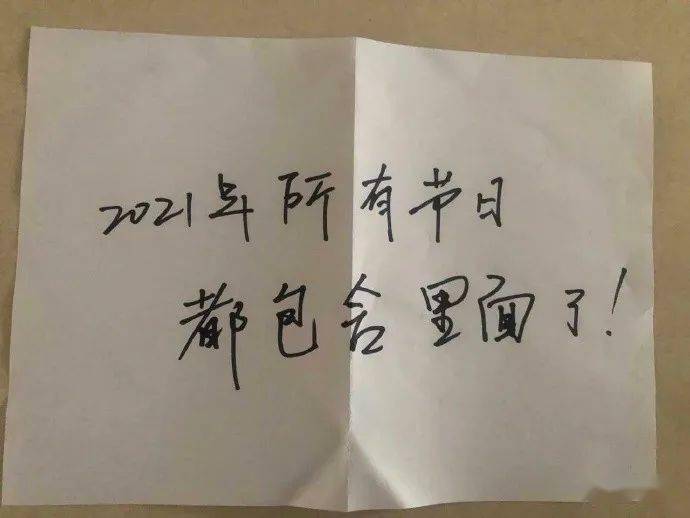 2021年所有节日
都包含里面了！